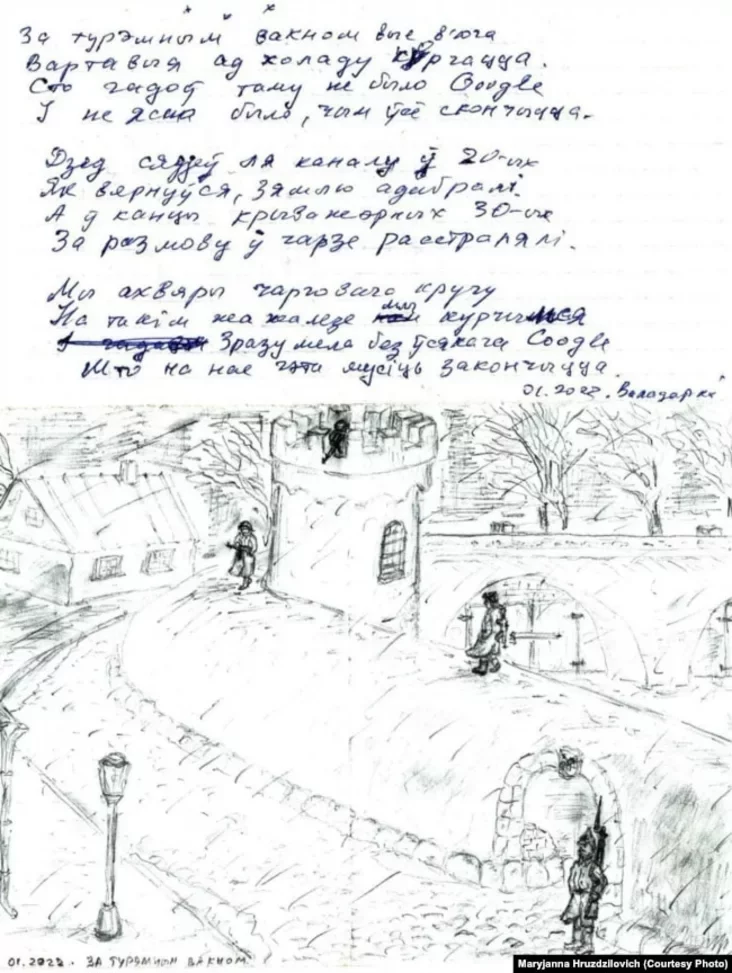 За турэмным вакном вые в'юга
Вартавыя ад холаду курчацца.
Сто гадоў таму не было Google
І не ясна было, чым ўсё скончыцца.
Дзед сядзеў ля каналу ў 20-ых
Як вярнуўся, зямлю адабралі.
А ў канцы крыважэрных 30-ых
За размову ў чарзе расстралялі.
Мы ахвяры чарговага кругу
На такім жа жалезе мы курчимся
Зразумела без ўсякага Google
Што на нас гэта мусіць закончыцца.
01.2022. Валадарка
01.2022. ЗА ТУРЭМНЫМ ВАКНОМ.
Maryjanna Hruzdzilovich (Courtesy Photo)